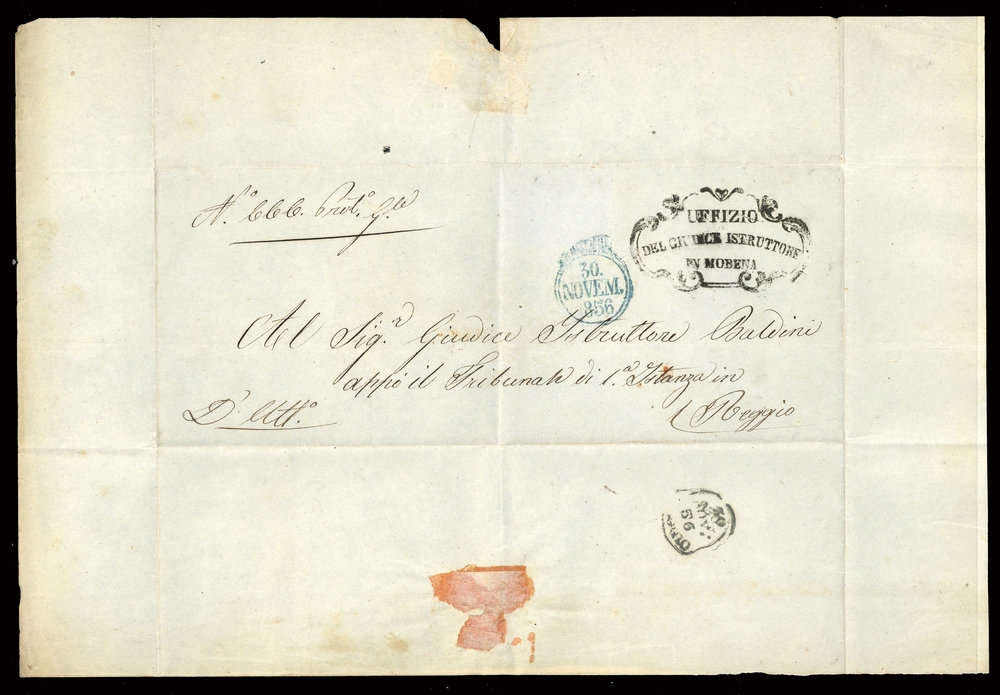 Nº 666. Prot.º G.le
UFFIZIO
DEL GIUDICE ISTRUTTORE
IN MODENA
30.
NOVEM.
856
Al Sig.r Giudice Istruttore Baldini
appo il Tribunale di 1.a Istanza in
D' Uff.o
Reggio
30
NOV.
56